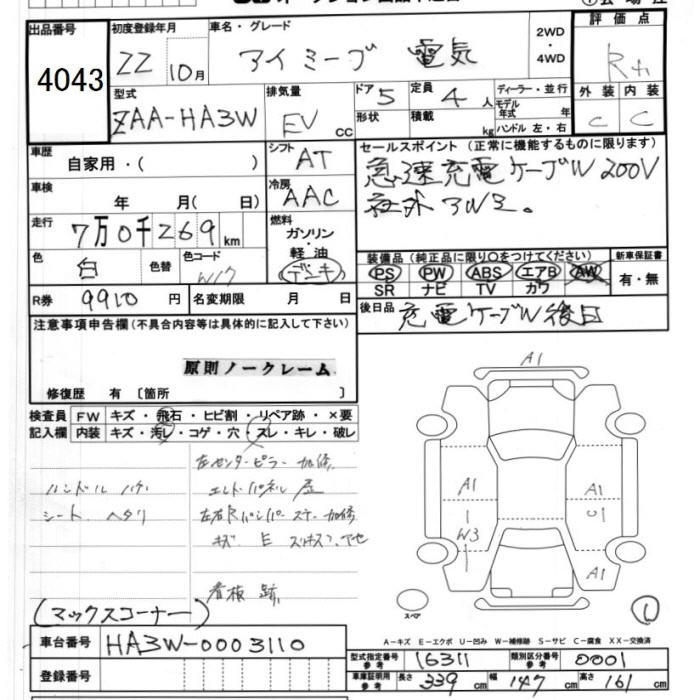 出品番号
4043
初度登録年月
22 10月
車名・グレード
アイミーブ 電気
2WD
・
4WD
評価点
外装 内装
C C
型式
ZAA-HA3W
排気量
EV cc
ドア 5
形状
定員 4 人
積載 kg
ディーラー・並行
モデル年式 年
ハンドル 左・右
車歴
自家用・( )
シフト
AT
セールスポイント (正常に機能するものに限ります)
急速充電ケーブル 200V
社外アルミ。
車検
年 月( 日)
冷房
AAC
走行
7万0千269km
燃料
ガソリン・軽油
デンキ
色
白
色替
色コード
W17
装備品 (純正品に限り〇をつけてください)
PS PW ABS エアB AW
SR ナビ TV カワ
新車保証書
有・無
R券 9910円
名変期限 月 日
後日品 充電ケーブル後日
注意事項申告欄 (不具合内容等は具体的に記入して下さい)
原則ノークレーム
修復歴 有 〔箇所 〕
検査員記入欄
FW キズ・飛石・ヒビ割・リペア跡・×要
内装 キズ・汚レ・コゲ・穴・スレ・キレ・破レ
左センターピラー 加修
ハンドル ハゲ
エンドパネル 歪
シート ヘタリ
キズ E
看板 跡
A1
A1
|
W3
A1
U1
A1
スペア
1
(マックスコーナー)
A−キズ E−エクボ U−凹み W−補修跡 S−サビ C−腐食 XX−交換済
車台番号 HA3W-0003110
登録番号
型式指定番号 参考 16311
類別区分番号 参考 0001
車庫証明用 参考 長さ 339 cm 幅 147 cm 高さ 161 cm